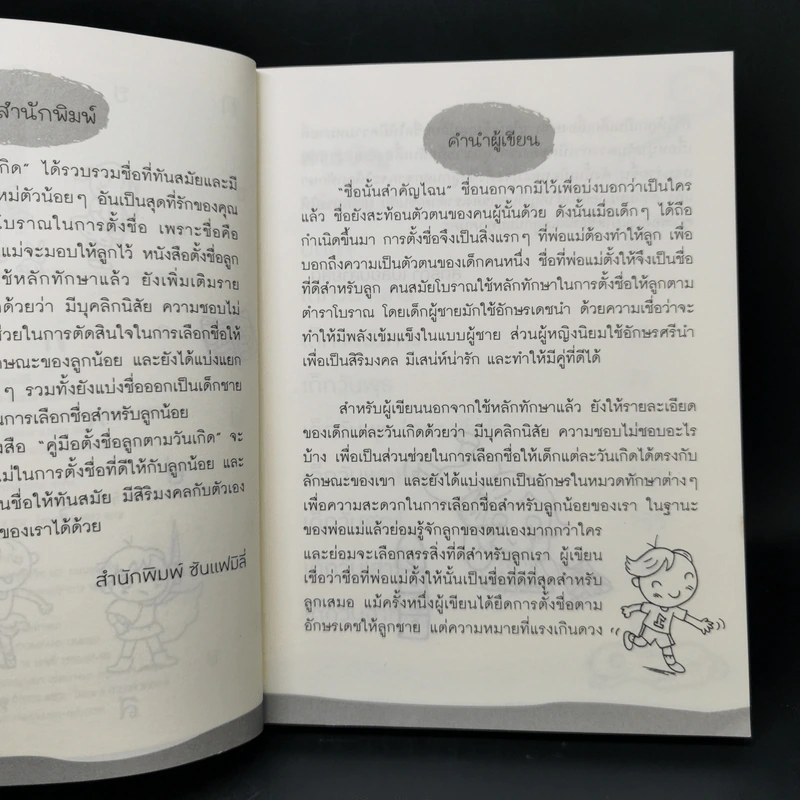 สำนักพิมพ์
เกิด” ได้รวบรวมชื่อที่ทันสมัยและมี
หม่ตัวน้อยๆ อันเป็นสุดที่รักของคุณ
โบราณในการตั้งชื่อ เพราะชื่อคือ
แม่จะมอบให้ลูกไว้ หนังสือตั้งชื่อลูก
ใช้หลักทักษาแล้ว ยังเพิ่มเติมราย
ด้วยว่า มีบุคลิกนิสัย ความชอบไม่
ช่วยในการตัดสินใจในการเลือกชื่อให้
ษณะของลูกน้อย และยังได้แบ่งแยก
ๆ รวมทั้งยังแบ่งชื่อออกเป็นเด็กชาย
นการเลือกชื่อสำหรับลูกน้อย
สือ “คู่มือตั้งชื่อลูกตามวันเกิด” จะ
ม่ในการตั้งชื่อที่ดีให้กับลูกน้อย และ
นชื่อให้ทันสมัย มีสิริมงคลกับตัวเอง
ของเราได้ด้วย
สำนักพิมพ์ ซันแฟมิลี่
คำนำผู้เขียน
“ชื่อนั้นสำคัญไฉน” ชื่อนอกจากมีไว้เพื่อบ่งบอกว่าเป็นใคร
แล้ว ชื่อยังสะท้อนตัวตนของคนผู้นั้นด้วย ดังนั้นเมื่อเด็กๆ ได้ถือ
กำเนิดขึ้นมา การตั้งชื่อจึงเป็นสิ่งแรกๆ ที่พ่อแม่ต้องทำให้ลูก เพื่อ
บอกถึงความเป็นตัวตนของเด็กคนหนึ่ง ชื่อที่พ่อแม่ตั้งให้จึงเป็นชื่อ
ที่ดีสำหรับลูก คนสมัยโบราณใช้หลักทักษาในการตั้งชื่อให้ลูกตาม
ตำราโบราณ โดยเด็กผู้ชายมักใช้อักษรเดชนำ ด้วยความเชื่อว่าจะ
ทำให้มีพลังเข้มแข็งในแบบผู้ชาย ส่วนผู้หญิงนิยมใช้อักษรศรีนำ
เพื่อเป็นสิริมงคล มีเสน่ห์น่ารัก และทำให้มีคู่ที่ดีได้
สำหรับผู้เขียนนอกจากใช้หลักทักษาแล้ว ยังให้รายละเอียด
ของเด็กแต่ละวันเกิดด้วยว่า มีบุคลิกนิสัย ความชอบไม่ชอบอะไร
บ้าง เพื่อเป็นส่วนช่วยในการเลือกชื่อให้เด็กแต่ละวันเกิดได้ตรงกับ
ลักษณะของเขา และยังได้แบ่งแยกเป็นอักษรในหมวดทักษาต่างๆ
เพื่อความสะดวกในการเลือกชื่อสำหรับลูกน้อยของเรา ในฐานะ
ของพ่อแม่แล้วย่อมรู้จักลูกของตนเองมากกว่าใคร
และย่อมจะเลือกสรรสิ่งที่ดีสำหรับลูกเรา ผู้เขียน
เชื่อว่าชื่อที่พ่อแม่ตั้งให้นั้นเป็นชื่อที่ดีที่สุดสำหรับ
ลูกเสมอ แม้ครั้งหนึ่งผู้เขียนได้ยึดการตั้งชื่อตาม
อักษรเดชให้ลูกชาย แต่ความหมายที่แรงเกินดวง